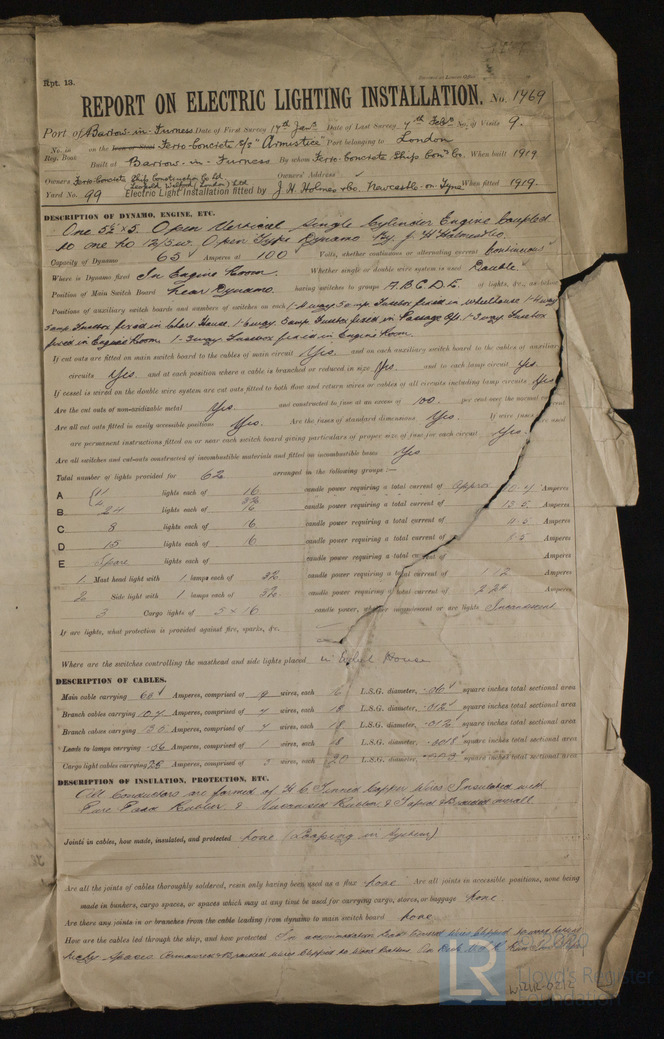 Rpt. 13.
REPORT ON ELECTRIC LIGHTING INSTALLATION. No. 1469
Port of Barrow-in-Furness Date of First Survey 17th Jany Date of Last Survey 7th Feby No. of Visits 9.
No. in Reg. Book on the Iron or Steel Ferro-Concrete S/S "Armistice" Port belonging to London
Built at Barrow-in-Furness By whom Ferro-Concrete Ship Con. Co. When built 1919
Owners Ferro-Concrete Ship Construction Co Ltd Owners' Address
Leopold Walford (London) Ltd
Yard No. 99 Electric Light Installation fitted by J. H. Holmes & Co. Newcastle-on-Tyne When fitted 1919.
DESCRIPTION OF DYNAMO, ENGINE, ETC.
One 5½ x 5. Open Vertical Single Cylinder Engine Coupled
to one No 12/5w. Open Type Dynamo By J. H Holmes & Co.
Capacity of Dynamo 65 Amperes at 100 Volts, whether continuous or alternating current Continuous
Where is Dynamo fixed In Engine Room. Whether single or double wire system is used Double
Position of Main Switch Board Near Dynamo. having switches to groups A B C D E. of lights, &c., as below
Positions of auxiliary switch boards and numbers of switches on each 1-4 way 5 amp Fusebox fixed in wheelhouse 1-6 way
5 amp Fusebox fixed in Chart House. 1-6 way 5 amp Fusebox fixed in Passage 1-3 way Fusebox
fixed in Engine Room 1-3 way Fusebox fixed in Engine Room.
If cut outs are fitted on main switch board to the cables of main circuit Yes. and on each auxiliary switch board to the cables of auxiliary
circuits Yes. and at each position where a cable is branched or reduced in size Yes. and to each lamp circuit Yes.
If vessel is wired on the double wire system are cut outs fitted to both flow and return wires or cables of all circuits including lamp circuits Yes
Are the cut outs of non-oxidizable metal Yes. and constructed to fuse at an excess of 100. per cent over the normal current
Are all cut outs fitted in easily accessible positions Yes. Are the fuses of standard dimensions Yes. If wire fuses are used
are permanent instructions fitted on or near each switch board giving particulars of proper size of fuse for each circuit Yes.
Are all switches and cut-outs constructed of incombustible materials and fitted on incombustible bases Yes
Total number of lights provided for 62 arranged in the following groups :—
A lights each of 16 candle power requiring a total current of Approx Amperes
32
B 24 lights each of 16 candle power requiring a total current of Amperes
C 8 lights each of 16 candle power requiring a total current of Amperes
D 15 lights each of 16 candle power requiring a total current of Amperes
E Spare lights each of candle power requiring a total current of Amperes
1 Mast head light with 1 lamps each of 32 candle power requiring a total current of 1.12 Amperes
2 Side light with 1 lamps each of 32 candle power requiring a total current of 2.24 Amperes
3 Cargo lights of 5 x 16 candle power, whether incandescent or arc lights Incandescent
If arc lights, what protection is provided against fire, sparks, &c.
Where are the switches controlling the masthead and side lights placed in Wheel House
DESCRIPTION OF CABLES.
Main cable carrying Amperes, comprised of 19 wires, each 16 L.S.G. diameter, square inches total sectional area
Branch cables carrying 10.4 Amperes, comprised of 7 wires, each 18 L.S.G. diameter, square inches total sectional area
Branch cables carrying Amperes, comprised of 7 wires, each 18 L.S.G. diameter, square inches total sectional area
Leads to lamps carrying .56 Amperes, comprised of 1 wires, each 18 L.S.G. diameter, .0018 square inches total sectional area
Cargo light cables carrying Amperes, comprised of wires, each L.S.G. diameter, square inches total sectional area
DESCRIPTION OF INSULATION, PROTECTION, ETC.
All Conductors are formed of H C Tinned Copper Wires Insulated with
Pure Para Rubber & Vulcanized Rubber & Taped & Braided overall
Joints in cables, how made, insulated, and protected None (Looping in System)
Are all the joints of cables thoroughly soldered, resin only having been used as a flux None. Are all joints in accessible positions, none being
made in bunkers, cargo spaces, or spaces which may at any time be used for carrying cargo, stores, or baggage None
Are there any joints in or branches from the cable leading from dynamo to main switch board None
How are the cables led through the ship, and how protected In accommodation Lead Covered wires clipped
Armoured & Braided wires clipped to Wood Battens. On Deck
LR
Lloyd's Register
Foundation